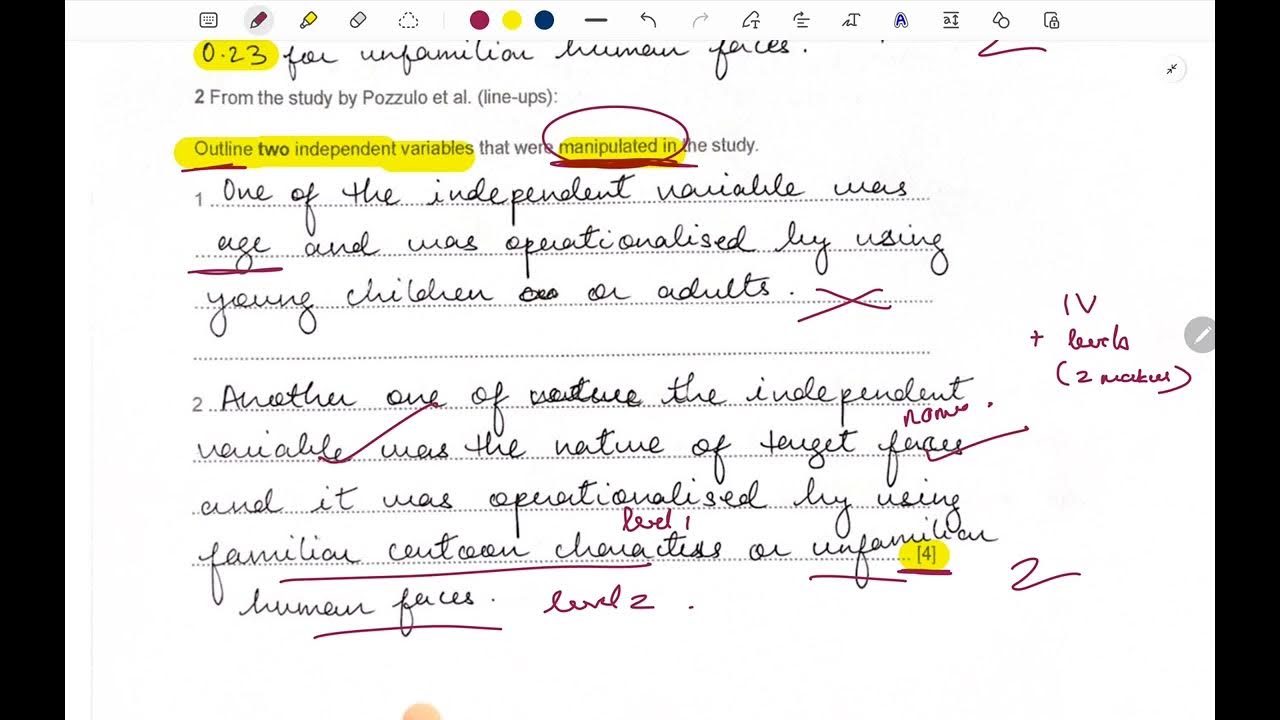 0.23 for unfamiliar human faces.
2 From the study by Pozzulo et al. (line-ups):
Outline two independent variables that were manipulated in the study.
1 One of the independent variable was
age and was operationalised by using
young children or adults.
IV
+ levels
(2 marks)
2 Another one of nature the independent
name.
variable was the nature of target faces
and it was operationalised by using
level 1
familiar cartoon characters or unfamiliar [4]
2
human faces. level 2.